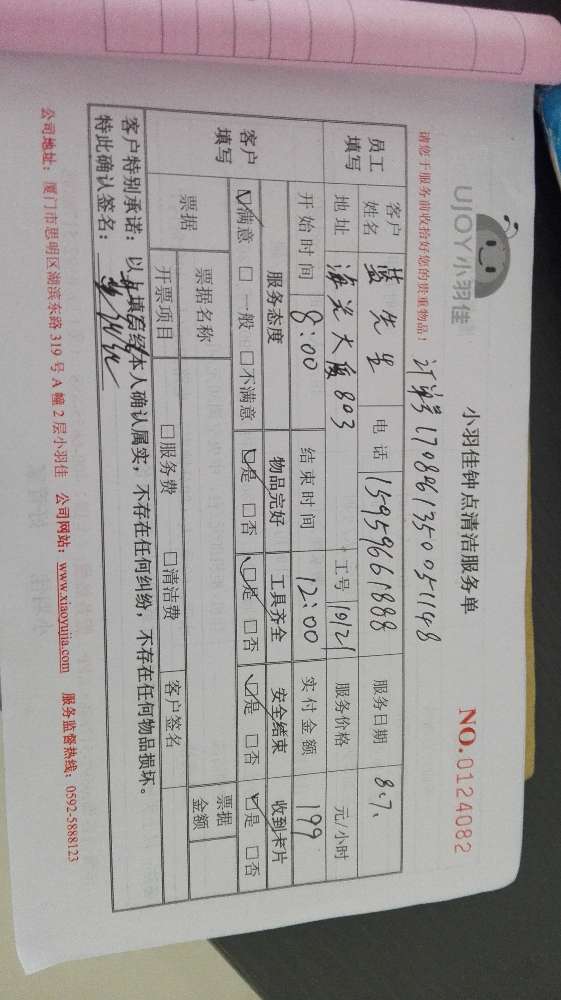 UJOY小羽佳
小羽佳钟点清洁服务单
NO.0124082
请您于服务前收拾好您的贵重物品!
订单号
员工填写 客户姓名 蓝先生 电话 15959661888 服务日期 8.7.
地址 海光大厦803 工号 1912 服务价格 元/小时
开始时间 8:00 结束时间 12:00 实付金额 199
客户填写 服务态度 物品完好 工具齐全 安全结束 收到卡片
☑满意 □一般 □不满意 ☑是 □否 ☑是 □否 ☑是 □否 ☑是 □否
票据 票据名称 票据金额
开票项目 □服务费 □清洁费 客户签名
客户特别承诺:以上填写经本人确认属实,不存在任何纠纷,不存在任何物品损坏。
特此确认签名:
公司地址:厦门市思明区湖滨东路319号A幢2层小羽佳 公司网站:www.xiaoyujia.com 服务监督热线:0592-5888123